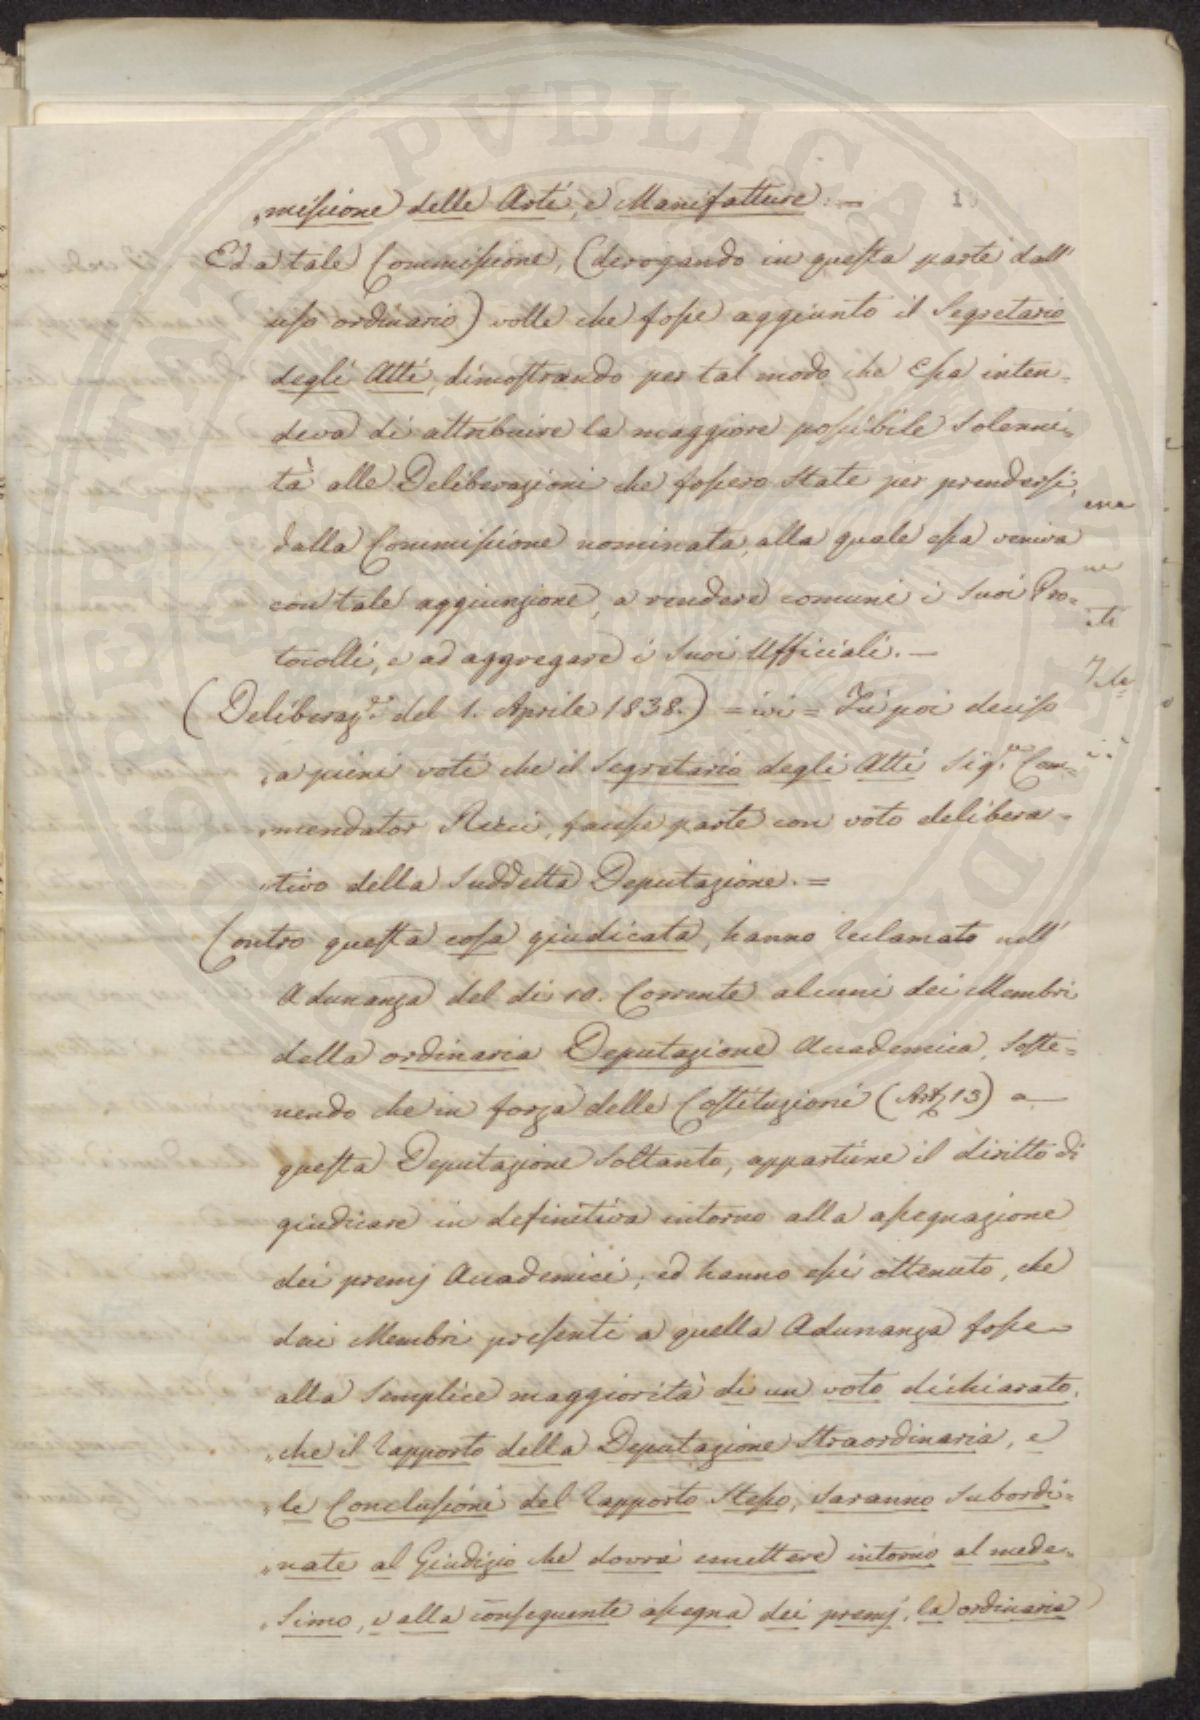 „missione delle Arti, e Manifatture. —
Ed a tale Commissione, (derogando in questa parte dall'
uso ordinario) volle che fosse aggiunto il Segretario
degli Atti, dimostrando per tal modo che Essa inten=
deva di attribuire la maggiore possibile Solenni=
tà alle Deliberazioni che fossero State per prendersi,
dalla Commissione nominata, alla quale essa veniva
con tale aggiunzione, a rendere comuni i Suoi Pro=
tocolli, e ad aggregare i Suoi Ufficiali. —
(Deliberaz.e del 1. Aprile 1838.) = ivi = Fù poi deciso
„a pieni voti che il Segretario degli Atti Sig.re Com=
„mendator Ricci, facesse parte con voto delibera=
„tivo della Suddetta Deputazione. =
Contro questa cosa giudicata, hanno reclamato nell'
Adunanza del dì 10. Corrente alcuni dei Membri
della ordinaria Deputazione Accademica, Soste=
nendo che in forza delle Costituzioni (Art. 13) a
questa Deputazione Soltanto, appartiene il diritto di
giudicare in definitiva intorno alla assegnazione
dei premj Accademici; ed hanno essi ottenuto, che
dai Membri presenti a quella Adunanza fosse
alla Semplice maggiorità di un voto dichiarato,
„che il rapporto della Deputazione Straordinaria, e
„le Conclusioni del rapporto Stesso, Saranno Subordi=
„nate al Giudizio che dovrà emettere intorno al mede=
„Simo, e alla conseguente assegna dei premj, la ordinaria